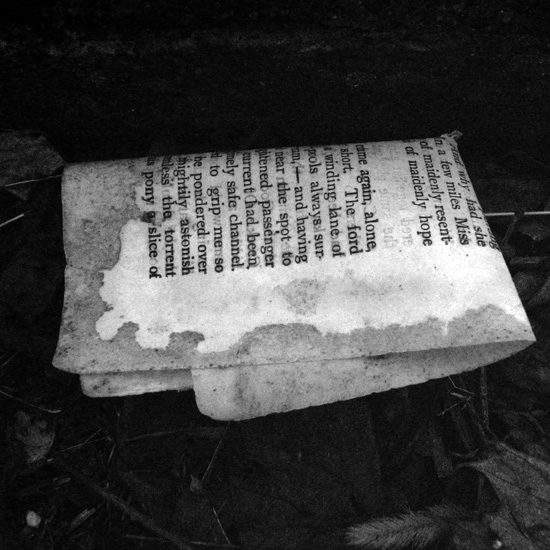 and why had she
n a few miles Miss
of maidenly resent-
of maidenly hope
came again, alone
short. The ford
a winding lane of
pools always sur-
um,—and having
near the spot to
ghtened passenger
current had been
mely safe channel.
to grip me so
be pondered over
mightily astonish
unless the torrent
a pony a slice of